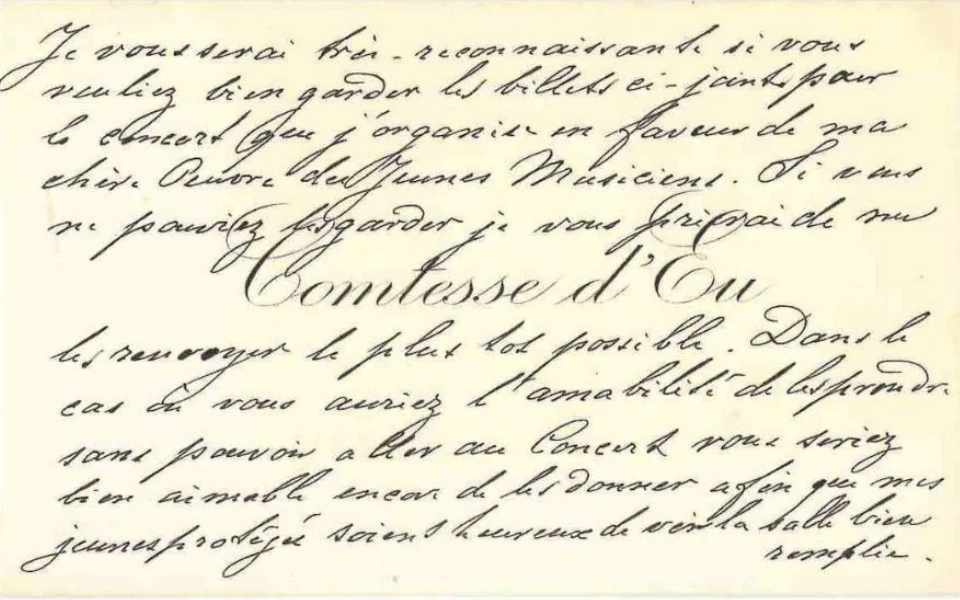 Je vous serai très-reconnaissante si vous
vouliez bien garder les billets ci-joints pour
le concert que j'organise en faveur de ma
chère Oeuvre des Jeunes Musiciens. Si vous
ne pouviez les garder je vous prierai de me
Comtesse d'Eu
les renvoyer le plus tôt possible. Dans le
cas où vous auriez l'amabilité de les prendre
sans pouvoir aller au Concert vous seriez
bien aimable encore de les donner afin que mes
jeunes protégés soient heureux de voir la salle bien
remplie.